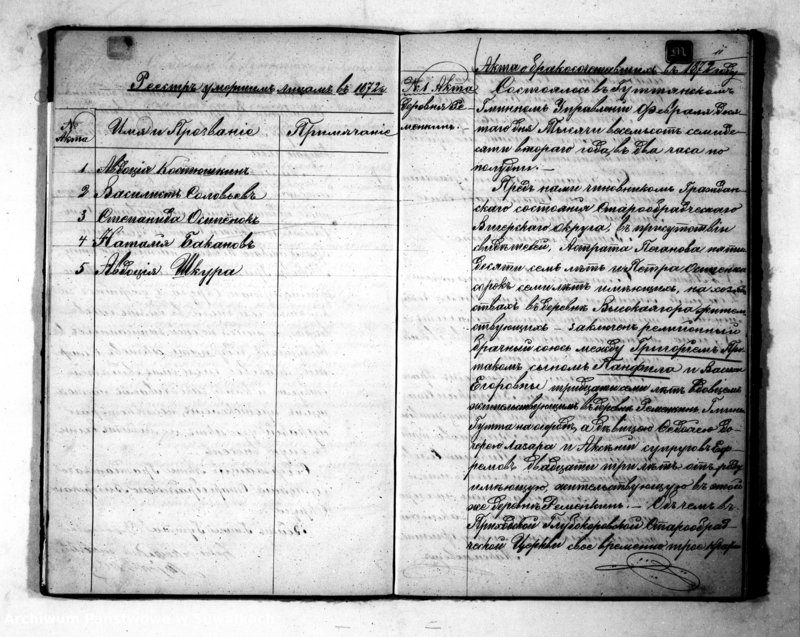 Реестръ умершимъ лицамъ въ 1872 г.
№ Акта
Имя и Прозваніе
Примѣчаніе
1 Авдоція Костюшкинъ
2 Василистъ Соловьевъ
3 Степанида Осипенокъ
4 Наталія Бакановъ
5 Авдоція Шкура
Акта о бракосочетавшимъ въ 1872 году
№ 1. Акта
Деревня Ре-
менкинъ. –
Состоялось въ Гуттянскомъ
Гминномъ Управленіи Февраля
таго дня Тысячи восемьсотъ семиде-
сяти втораго года въ два часа по
полудни. –
Предъ нами чиновникомъ Граждан-
скаго состоянія Старообрадческаго
Вигерскаго Округа, въ присутствіи
свидѣтелей, Астрата Поганова пяти
десяти семь лѣтъ и Петра
сорокъ семи лѣтъ имѣющихъ, на хозяй
ствахъ въ деревнѣ Высокаягора
ствующихъ – заключенъ религіенный
брачный союзъ между Григоріемъ
сыномъ Панфила и
Егоровны тридцати семи лѣтъ Вдовцемъ
жительствующимъ въ деревнѣ Ременкинъ Гмина
Гутта а дѣвицою Ѳедосею До-
черею Лазара и Аксеніи супруговъ Еф-
ремовъ двадцати три лѣтъ отъ роду
имѣющею, жительствующую въ этой
же деревнѣ Ременкинъ. – Объ чемъ въ
Приходской Глубокоровской Старообрад-
ческой Церкви свое временно трое крат-
Archiwum Państwowe w Suwałkach